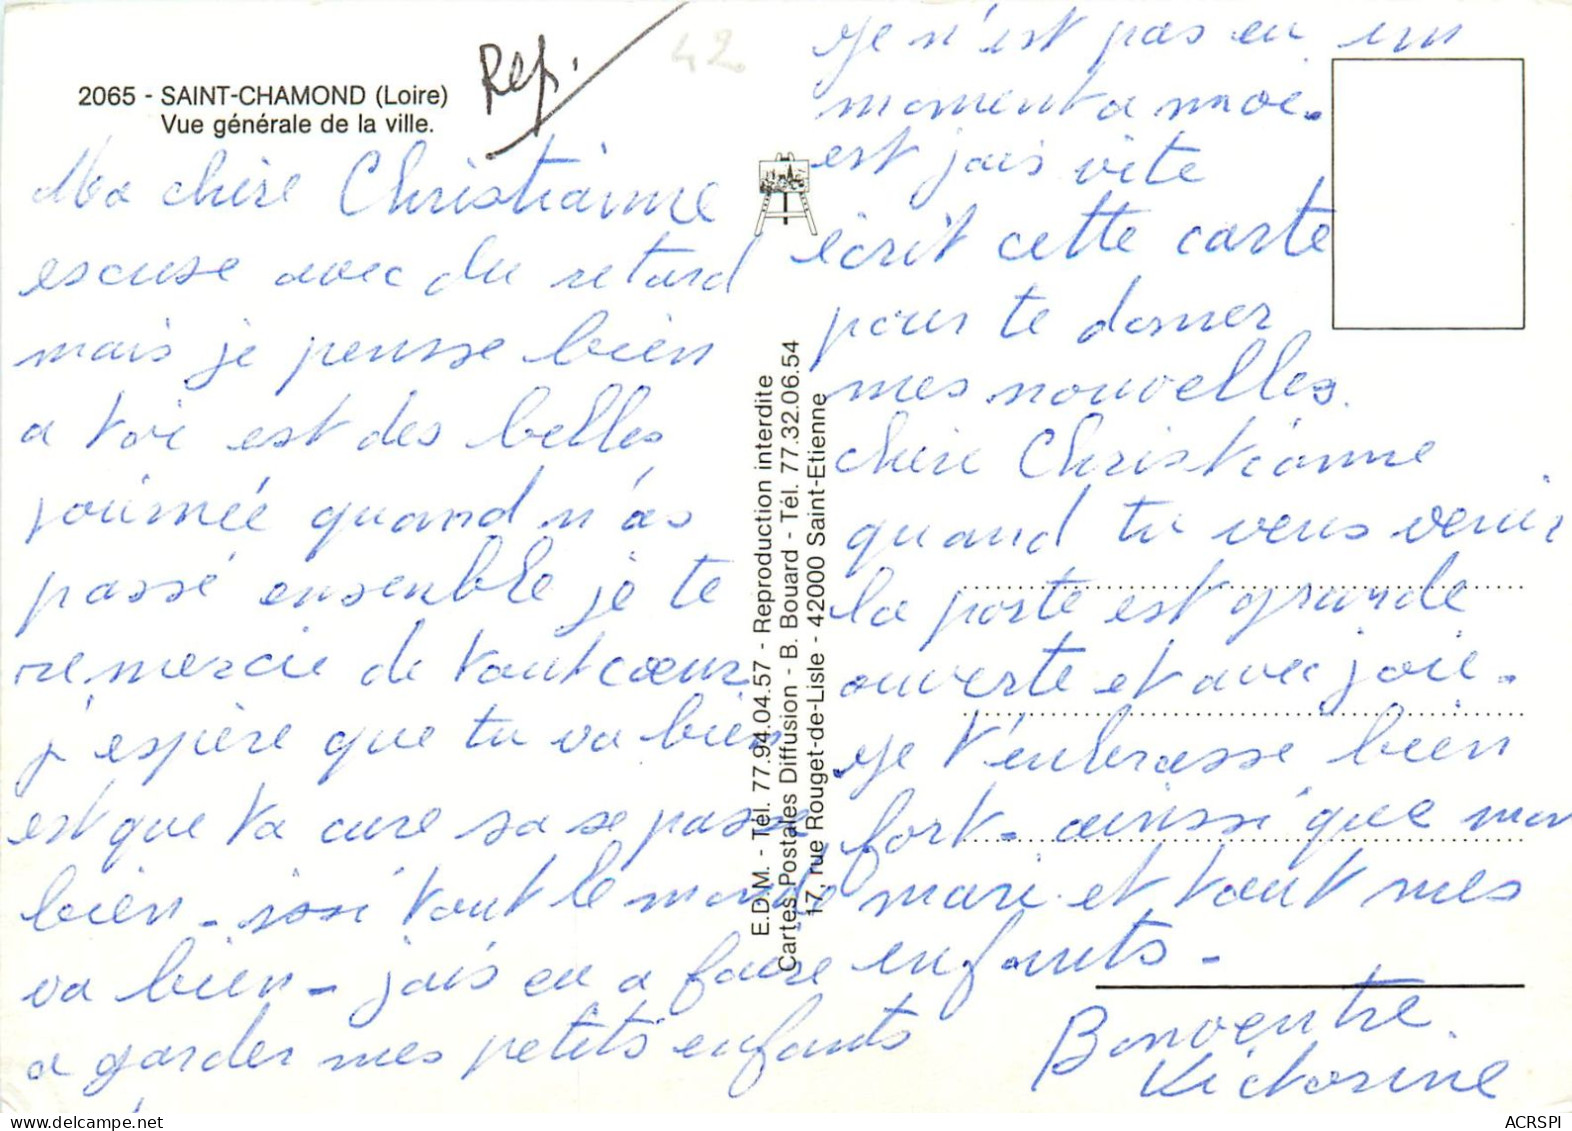 2065 - SAINT-CHAMOND (Loire)
Vue générale de la ville.
Rep.
42
Ma chère Christianne
escuse avec du retard
mais je pensse bien
a toi est des belles
journée quand n'as
passé ensenble je te
remercie de tout cœur
j'espère que tu va bien
est que ta cure sa se passe
bien - issi tout le monde
va bien - jais eu a faire
a garder mes petits enfants
je n'est pas eu un
moment a moi.
est jais vite
écrit cette carte
pour te donner
mes nouvelles.
chère Christianne
quand tu veus venir
la porte est grande
ouverte et avec joie.
je t'enbrasse bien
fort - ainssi que mon
mari et tout mes
enfants -
Bonventre
Victorine
E.D.M. - Tél. 77.94.04.57 - Reproduction interdite
Cartes Postales Diffusion - B. Bouard - Tél. 77.32.06.54
17, rue Rouget-de-Lisle - 42000 Saint-Etienne
delcampe.net
ACRSPI